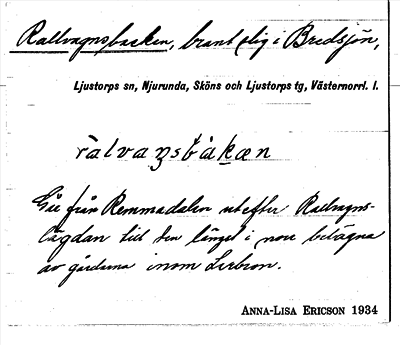 Rallvagnsbacken, brant stig i Bredsjön,
Ljustorps sn, Njurunda, Sköns och Ljustorps tg, Västernorrl. l.
ràlvaŋsbàkæn
Går från Remmadalen utefter Rallvagns-
lägdan till den längst i norr belägna
av gårdarna inom Lerbron.
ANNA-LISA ERICSON 1934